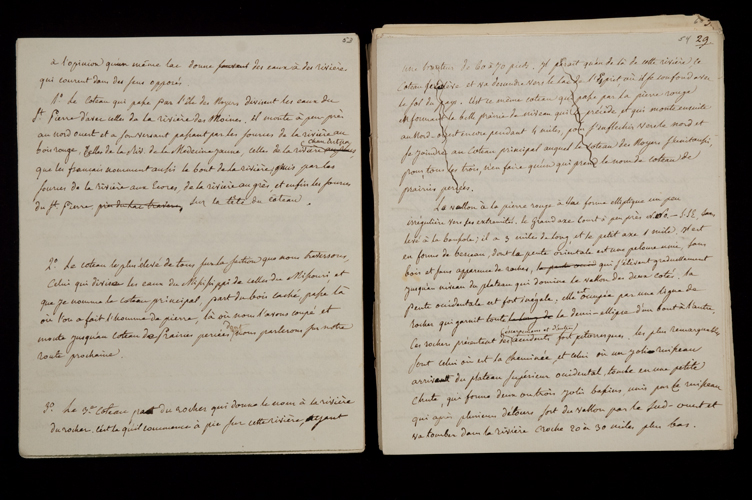 53
à l'opinion qu'un même lac donne souvent des eaux à des rivières
qui courent dans des sens opposés.
1º. Le coteau qui passe par l'île des Noyers divisent les eaux du
St. Pierre d'avec celles de la rivière des Moines. Il monte à peu près
au nord ouest et a son versant passant par les sources de la rivière au
bois rouge, celles de la Riv. de la Médecine jaune, celles de la rivière
que les français nomment aussi le bout de la rivière, puis par les
sources de la rivière aux Liards, de la rivière au grès, et enfin les sources
du St. Pierre sur la tête du coteau.
2º. Le coteau le plus élevé de tous sur la section que nous traversons,
Celui qui divise les eaux du Mississippi de celles du Missouri et
que je nomme le coteau principal, part du bois caché, passe là
où l'on a fait l'homme de pierre, là où nous l'avons coupé et
monte jusqu'au Coteau des Prairies percées, dont nous parlerons sur notre
route prochaine.
3º. Le 3e. Coteau part du rocher qui donne le nom à la rivière
du rocher. C'est là qu'il commence à pic sur cette rivière, ayant
54 29
une hauteur de 60 à 70 pieds. Il paraît que de là de cette rivière le
Coteau se divise et va descendre vers le Lac où il se confond avec
le sol du pays. C'est ce même coteau qui passe par la pierre rouge
en formant la belle prairie du niveau qui précède et qui monte ensuite
au Nord-ouest encore pendant 6 miles, puis s'infléchit vers le nord et
se joindre au Coteau principal auquel le Coteau des Noyers
pour tous les trois, n'en faire qu'un qui prend le nom de coteau de
prairies percées.
Le vallon à la pierre rouge a une forme elliptique un peu
irrégulière vers ses extrémités. le grand axe court à peu près S.S.E.
levé à la boussole; il a 3 miles de long et le petit axe 1 mile. Il est
en forme de berceau, dont la pente orientale est une pelouse unie, sans
bois et sans apparence de roches, qui s'élèvent graduellement
jusqu'au niveau du plateau qui domine le vallon des deux côtés. la
pente occidentale est fort inégale, elle est occupée par une ligne de
rocher qui garnit toute la demi-ellipse d'un bout à l'autre.
Ces rochers présentent des accidents fort pittoresques. les plus remarquables
sont celui où est la cheminée et celui où un joli ruisseau
arrivant du plateau supérieur occidental, tombe en une petite
chute, qui forme deux ou trois jolis bassins, unis par le ruisseau
qui après plusieurs détours sort du vallon par le Sud-ouest et
va tomber dans la rivière Croche 20 à 30 miles plus bas.